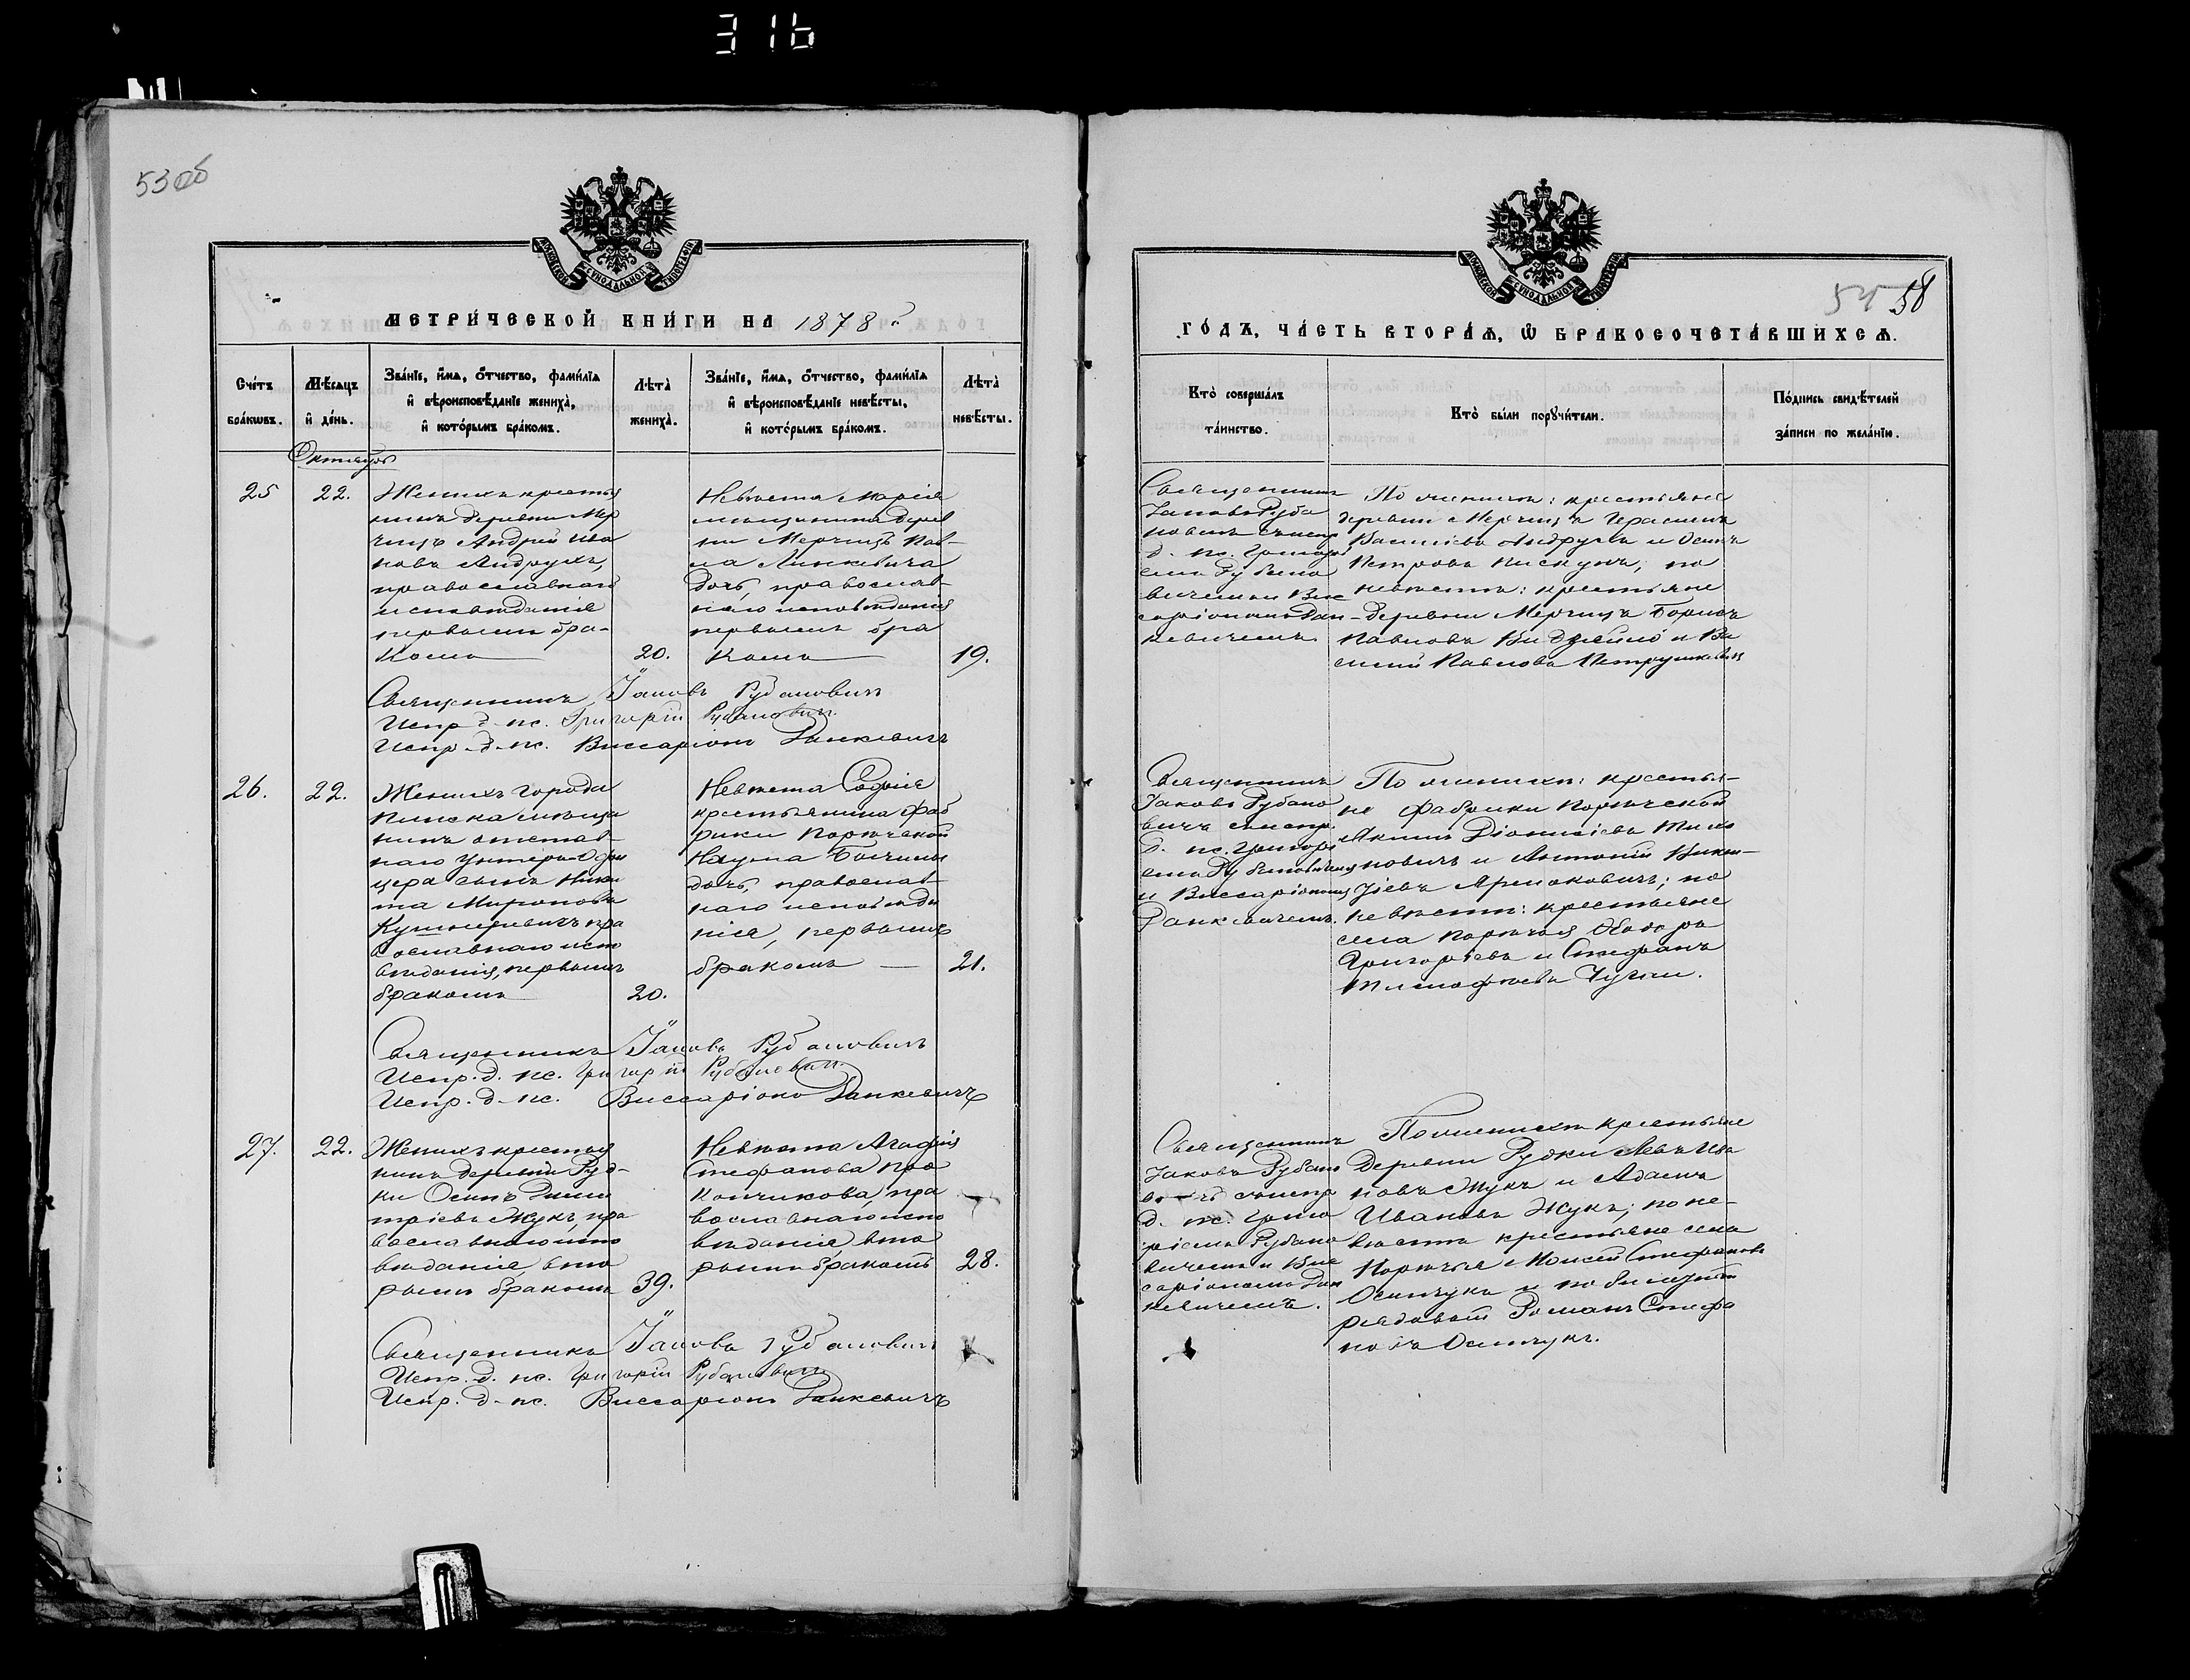 316
53 об
МЕТРИЧЕСКОЙ КНИГИ НА 1878 й
Счетъ браковъ.
Мѣсяцъ и день.
Званіе, имя, отчество, фамилія и вѣроисповѣданіе жениха, и которымъ бракомъ.
Лѣта жениха.
Званіе, имя, отчество, фамилія и вѣроисповѣданіе невѣсты, и которымъ бракомъ.
Лѣта невѣсты.
Октябрь
25
22.
Женихъ крестья
нинъ деревни Мер
чицъ Андрей Ива
новъ Андрухъ,
православнаго
исповѣданія
первымъ бра-
комъ
20.
Невѣста Марія
мѣщанина дерев
ни Мерчицъ Пав-
ла Линкевича
дочь, православ-
наго исповѣданія
первымъ бра
комъ
19.
Священникъ Іаковъ Рубановичъ
Испр. д. пс. Григорій Рубановичъ
Испр. д. пс. Виссаріонъ Данкевичъ
26.
22.
Женихъ города
Пинска мѣща
нинъ отстав-
наго Унтеръ-Офи
цера сынъ Ники
та Мироновъ
Кушнеревичъ пра
вославнаго испо
вѣданія, первымъ
бракомъ
20.
Невѣста Софія
крестьянина фаб
рики Порѣчской
Наума
дочь, православ-
наго исповѣда
нія, первымъ
бракомъ
21.
Священникъ Іаковъ Рубановичъ
Испр. д. пс. Григорій Рубановичъ
Испр. д. пс. Виссаріонъ Данкевичъ
27.
22.
Женихъ крестья
нинъ деревни Руд-
ки Осипъ Дими
тріевъ Жукъ, пра
вославнаго испо
вѣданія, вто
рымъ бракомъ
39.
Невѣста Агафія
Стефанова Про
кончикова, пра
вославнаго испо
вѣданія, вто
рымъ бракомъ
28.
Священникъ Іаковъ Рубановичъ
Испр. д. пс. Григорій Рубановичъ
Испр. д. пс. Виссаріонъ Данкевичъ
54 58
ГОДЪ, ЧАСТЬ ВТОРАЯ, Ѡ БРАКОСОЧЕТАВШИХСЯ.
Кто совершалъ таинство.
Кто были поручители.
Подпись свидѣтелей записи по желанію.
Священникъ
Іаковъ Руба
новичъ съ испр
д. пс. Григорі
емъ Рубано
вичемъ и Вис
саріономъ Дан-
кевичемъ
По женихѣ: крестьяне
деревни Мерчицъ Герасимъ
Василіевъ Андрухъ и Осипъ
Петровъ Пискунъ; по
невѣстѣ: крестьяне
деревни Мерчицъ Борисъ
Павловъ и Ва
силій Павловъ Петрушкевичъ
Священникъ
Іаковъ Рубано
вичъ съ испр.
д. пс. Григорі
емъ Рубановичемъ
и Виссаріономъ
Данкевичемъ.
По женихѣ: крестья-
не фабрики Порѣчской
Акимъ Діонисіевъ
новичъ и Антоній Викен-
тіевъ Ярмоковичъ; по
невѣстѣ: крестьяне
села Порѣчья Ѳеодоръ
Григорьевъ и Стефанъ
Тимофеевъ
Священникъ
Іаковъ Рубано
вичъ съ испр
д. пс. Григо
ріемъ Рубано
вичемъ и Вис
саріономъ Дан
кевичемъ.
По женихѣ крестьяне
деревни Рудки Левъ Ива
новъ Жукъ и Адамъ
Ивановъ Жукъ; по не-
вѣстѣ крестьяне села
Порѣчья Моисей Стефановъ
Осипчукъ и по билету
рядовой Романъ Стефа
новъ Осипчукъ.